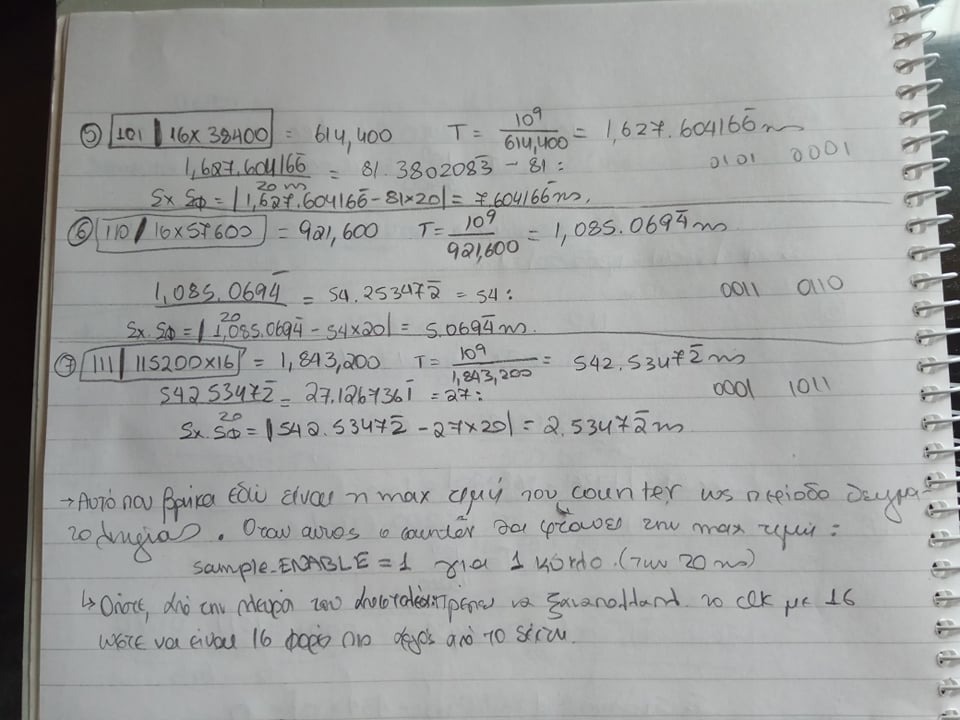 ⑤ 101 | 16×38400 = 614,400 T = 10⁹/614,400 = 1,627.604166̄ ns
1,627.604166̄ / 20 ns = 81.3802083̄ → 81: 0101 0001
Σχ. Σφ = |1,627.604166̄ - 81×20| = 7.604166̄ ns.
⑥ 110 | 16×57600 = 921,600 T = 10⁹/921,600 = 1,085.0694̄ ns
1,085.0694̄ / 20 = 54.253472̄ = 54: 0011 0110
Σχ. Σφ = |1,085.0694̄ - 54×20| = 5.0694̄ ns.
⑦ 111 | 115200×16 = 1,843,200 T = 10⁹/1,843,200 = 542.53472̄ ns
542.53472̄ / 20 = 27.1267361̄ = 27: 0001 1011
Σχ. Σφ = |542.53472̄ - 27×20| = 2.53472̄ ns
→ Αυτό που βρήκα εδώ είναι η max τιμή του counter, ως περίοδο δειγμα-
τοληψίας. Όταν αυτός ο counter θα φτάνει την max τιμή:
sample_ENABLE = 1 για 1 κύκλο. (των 20 ns)
↳ Οπότε, από την πλευρά του πρέπει να ξαναπολλαπλ. το clk με 16
ώστε να είναι 16 φορές πιο αργός από το δέκτη.